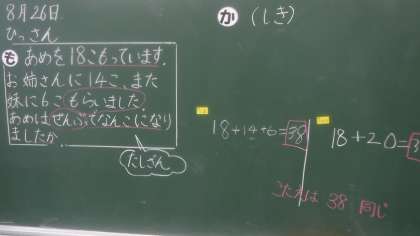 8月26日
ひっさん
も あめを18こもっています。
お姉さんに14こ、また
妹に6こもらいました
あめはぜんぶでなんこになり
ましたか。
たしざん
か (しき)
18+14+6=38
18+20=3
こたえは 38 同じ